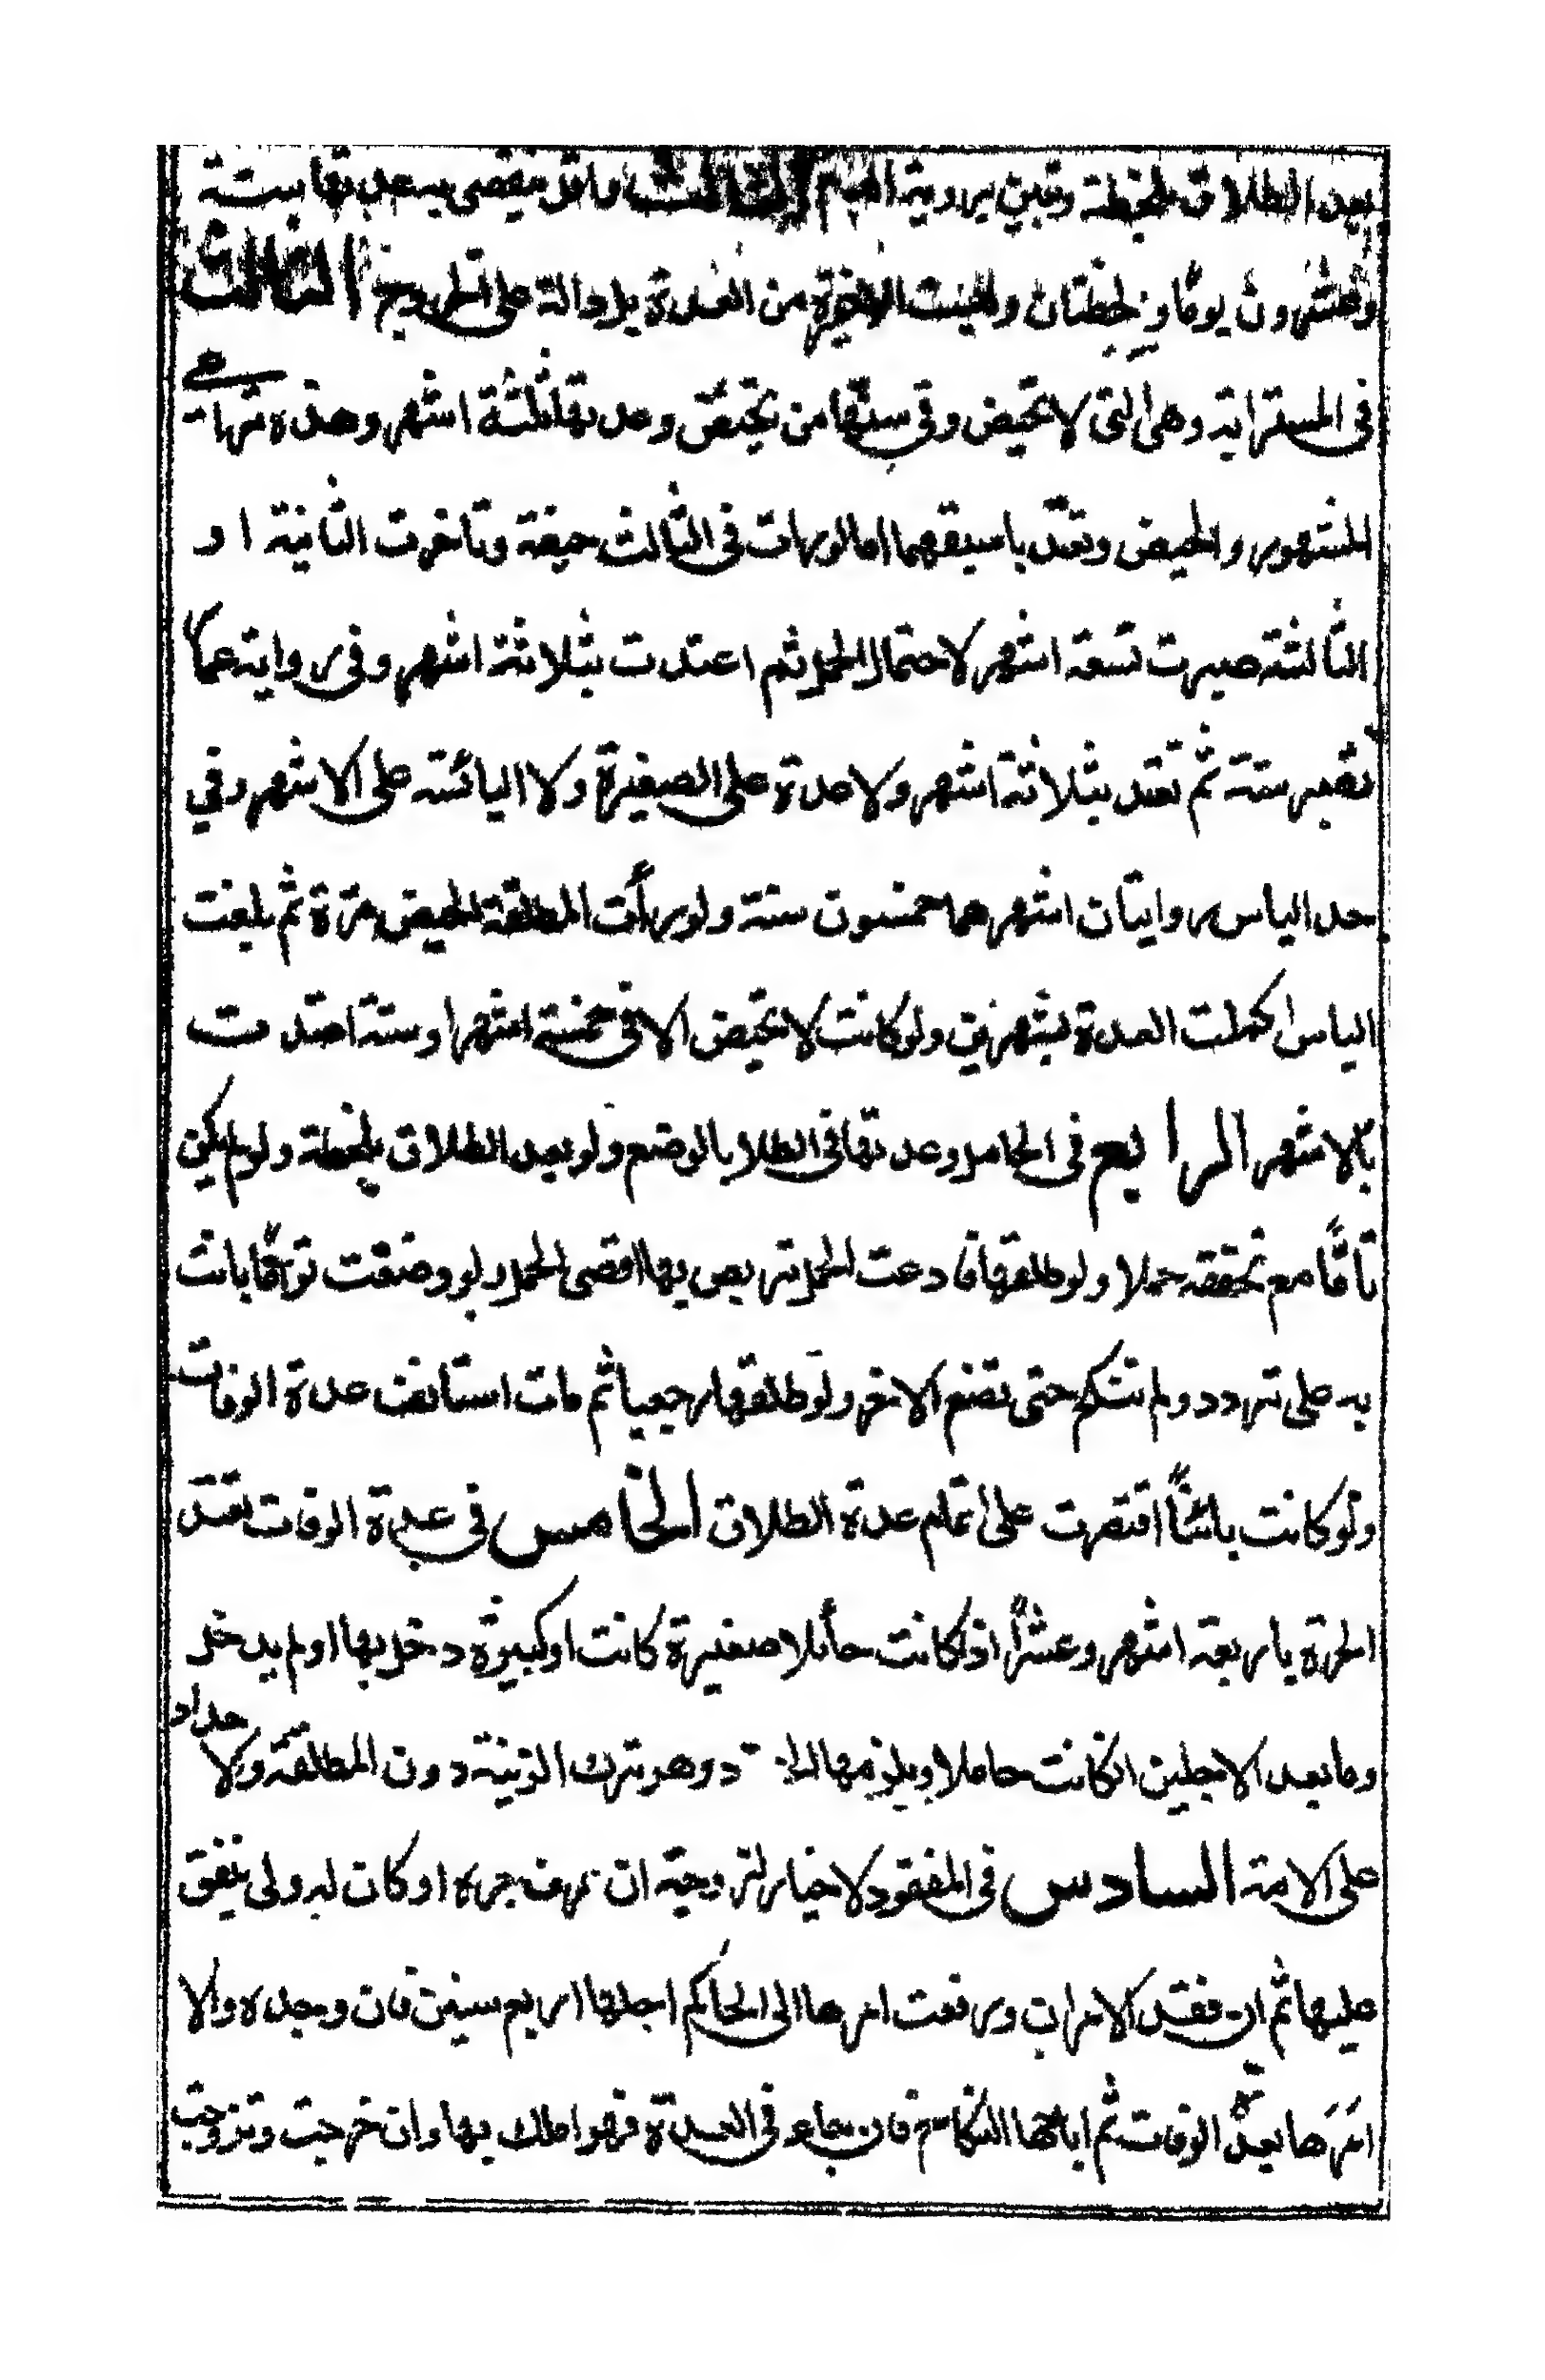 بعد الطلاق بلحظة وتبين برؤية الدم الثالث واقل ما ينقضي به عدتها ستة
وعشرون يوما ولحظتان وليست الاخيرة من العدة بل دالة على الخروج الثالث
في المسترابة وهي التي لا تحيض وفي سنها من تحيض وعدتها ثلثة اشهر وهذه تراعي
الشهور والحيض وتعتد باسبقهما اما لو رات في الثالث حيضة وتاخرت الثانية او
الثالثة صبرت تسعة اشهر لاحتمال الحمل ثم اعتدت بثلاثة اشهر وفي رواية عمار
تصبر سنة ثم تعتد بثلاثة اشهر ولا عدة على الصغيرة ولا اليائسة على الاشهر وفي
حد الياس روايتان اشهرهما خمسون سنة ولو رأت المطلقة الحيض مرة ثم بلغت
الياس اكملت العدة بشهرين ولو كانت لا تحيض الا في خمسة اشهر او ستة اعتدت
بالاشهر الرابع في الحامل وعدتها في الطلاق بالوضع ولو بعد الطلاق بلحظة ولو لم يكن
تاما مع تحققه حملا ولو طلقها فادعت الحمل تربص بها اقصى الحمل ولو وضعت توأما بانت
به على تردد ولم تنكح حتى تضع الاخر ولو طلقها رجعيا ثم مات استانفت عدة الوفات
ولو كانت بائنا اقتصرت على اتمام عدة الطلاق الخامس في عدة الوفات تعتد
الحرة باربعة اشهر وعشرا اذا كانت حائلا صغيرة كانت او كبيرة دخل بها او لم يدخل
وبابعد الاجلين ان كانت حاملا ويلزمها الحداد وهو ترك الزينة دون المطلقة ولا حداد
على الامة السادس في المفقود لا خيار لزوجته ان عرف خبره او كان له ولي ينفق
عليها ثم ان فقد الامران ورفعت امرها الى الحاكم اجلها اربع سنين فان وجده والا
امرها بعدة الوفات ثم اباحها النكاح فان جاء في العدة فهو املك بها وان خرجت وتزوجت